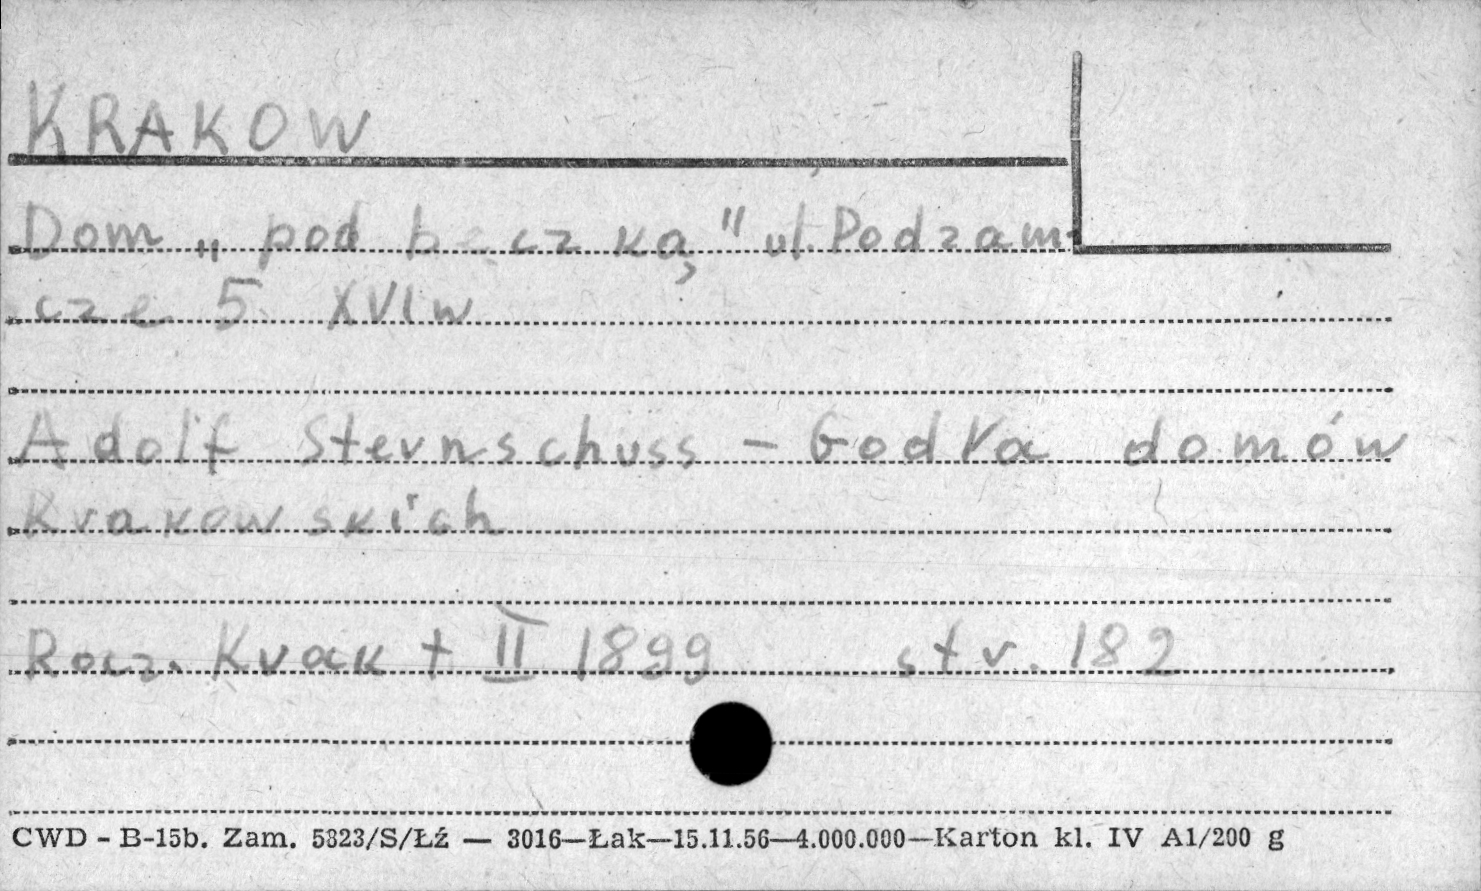 KRAKOW
Dom „pod beczką" ul. Podzam-
cze 5 XVI w
Adolf Sternschuss – Godła domów
Krakowskich
Rocz. Krak t II 1899 str. 182
CWD - B-15b. Zam. 5323/S/Łź — 3016—Łak—15.11.56—4.000.000—Karton kl. IV A1/200 g